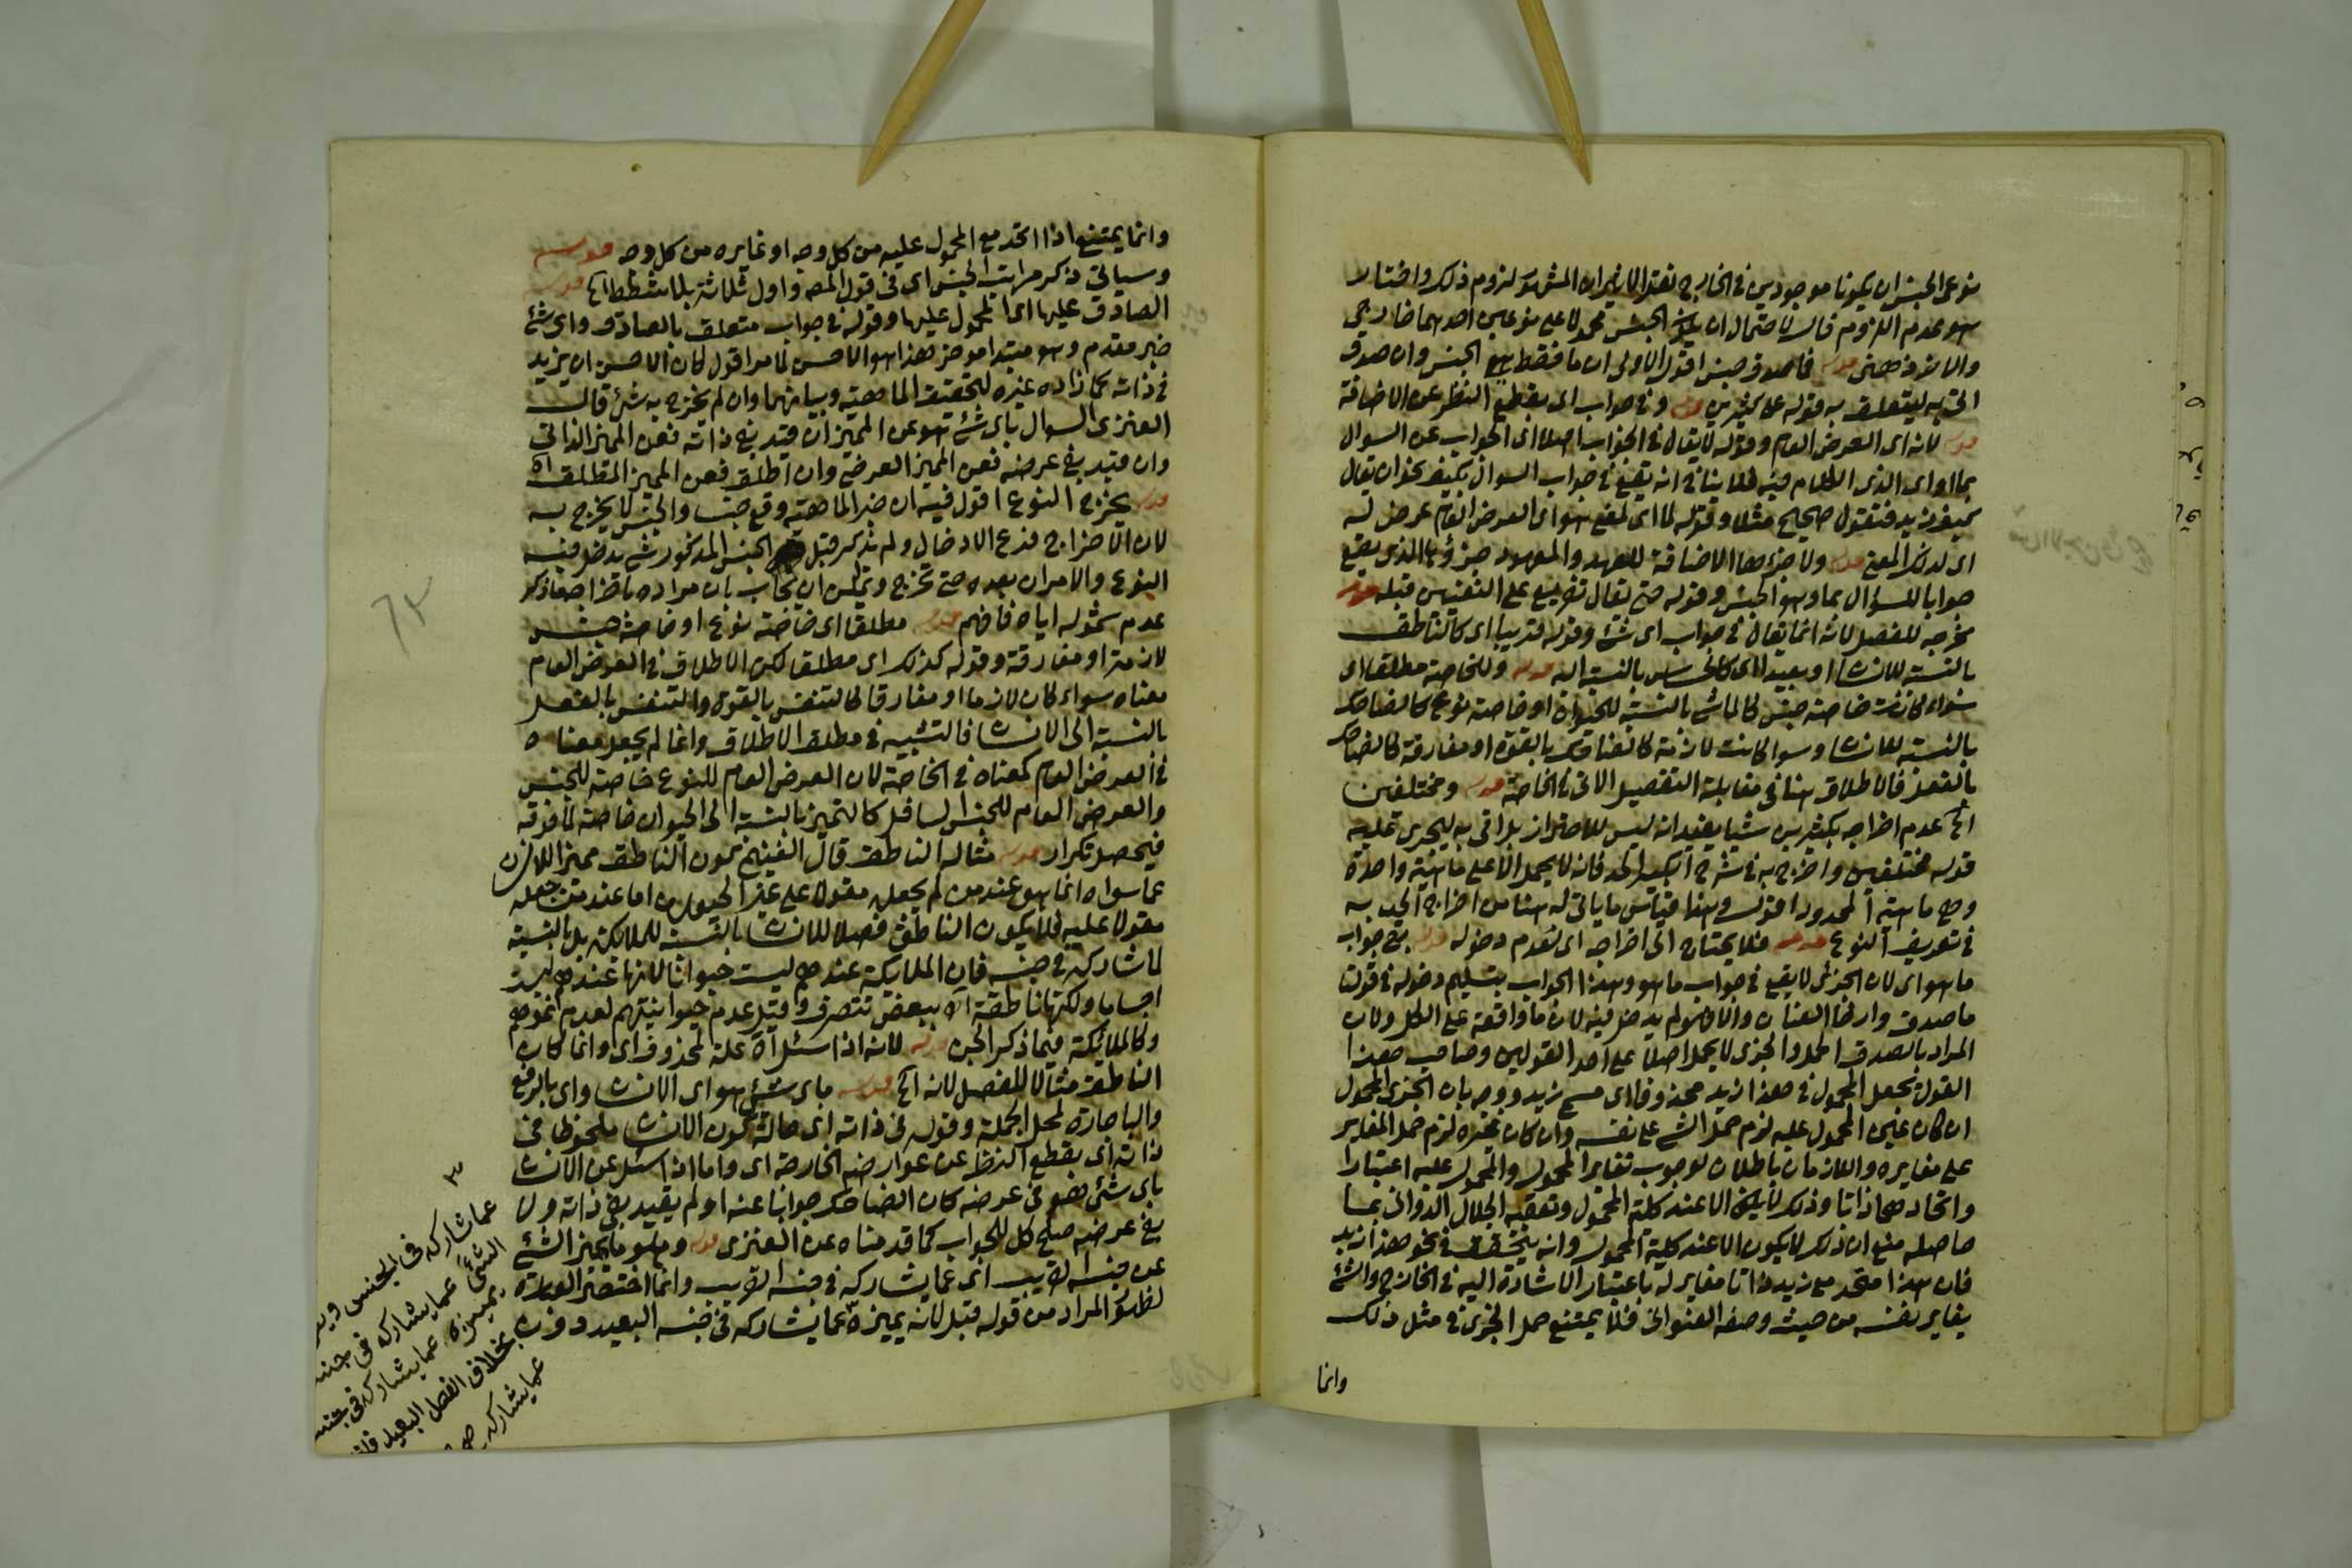 نوعى الجنس ان يكونا موجودين فى الخارج نعقدالا نزاع ان المش لزوم ذلك واختار
هو عدم اللزوم قال لاحتمال ان يكون الجنس محمولا على نوعين احدهما خارجى
والاخر ذهنى قوله فالصدوق جنس اقول الاولى ان ما فقط هو الجنس وان صدوق
اتى به ليتعلق به قوله على كثيرين قوله فى جواب اى بقطع النظر عن الاضافة
قوله لانه اى العرض العام وقوله لا يقال فى الجواب اصلا اى الجواب عن السوال
بما او اى الذى الكلام فيه فلا ينافى انه يقع فى جواب السوال بكيف نحو ان يقال
كيف زيد فتقول صحيح مثلا وقوله لما اى لمقع هو اى العرض العام عرض له
اى لذلك المقع قوله ولا جزءها الاضافة للعهد والمعهود جزؤها الذى يقع
جوابا للسؤال بما وهو الجنس وقوله حتى يقال تفريع على النفيين قبله قوله
مخرجه للفصل لانه انما يقال فى جواب اى شئ وقوله قريبا اى كالناطق
بالنسبة للانسان او بعيدا اى كالحساس بالنسبة اليه قوله وللخاصة مطلقا اى
سواء كانت خاصة جنس كالماشى بالنسبة للحيوان او خاصة نوع كالضاحك
بالنسبة للانسان وسواء كانت لازمة كالضاحك بالقوة او مفارقة كالضاحك
بالفعل فالاطلاق هنا فى مقابلة التفصيل الاتى فى الخاصة قوله ومختلفين
الخ عدم اخراجه بكثيرين شيا يفيد انه ليس للاحتراز بل اتى به ليجرى عليه
قوله مختلفين واخرج به فى شرح الحد فانه لا يحمل الا على ماهية واحدة
وهى ماهية المحدود اقول وهذا قياس ما ياتى له هنا من اخراج الحد به
فى تعريف النوع قوله فلا يحتاج الى اخراجه اى لعدم دخوله قوله فى جواب
ما هو اى لان الجزئى لا يقع فى جواب ما هو وهذا الجواب بتسليم دخوله فى قولنا
ما صدق وارخا العنان والا فهو لم يدخل فيه لان ما واقعة على الكل ولان
المراد بالصدق الحمل والجزى لا يحمل اصلا على احد القولين وصاحب هذا
القول يجعل المحمول فى هذا زيد محذوفا اى مسمى زيد ووجه بان الجزى المحمول
ان كان عين المحمول عليه لزم حمل الشئ على نفسه وان كان غيره لزم حمل المغاير
على مغايره واللازمان باطلان لوجوب تغاير المحمول والمحمول عليه اعتبارا
واتحادهما ذاتا وذلك لا يكون الا عند كلية المحمول وتعقبه الجلال الدوانى بما
حاصله منع ان ذلك لا يكون الا عند كلية المحمول وانه يتحقق فى نحو هذا زيد
فان هذا متحد مع زيد ذاتا مغاير له باعتبار الاشارة اليه فى الخارج والشئ
يغاير نفسه من حيث وصفه العنوانى فلا يمتنع حمل الجزى فى مثل ذلك
وانما
وانما يمتنع اذا اتحد مع المحمول عليه من كل وجه او غايره من كل وجه قوله
وسياتى ذكر مراتب الجنس اى فى قول المصه واول ثلاثة بلا شطط الخ قوله
الصادق عليها اى المحمول عليها وقوله فى جواب متعلق بالصادق واى شئ
خبر مقدم وهو مبتدا موخر هذا هو الاحسن لما مر اقول كان الاحسن ان يزيد
فى ذاته كما زاده غيره لتحقيق الماهية وبيانها وان لم يخرج به شئ قال
العنزى السوال باى شئ هو عن المميز ان قيد بفى ذاته فعن المميز الذاتى
وان قيد بفى عرضه فعن المميز العرضى وان اطلق فعن المميز المطلق اه
قوله يخرج النوع اقول فيه ان خبر الماهية وقع جنسا والجنس لا يخرج به
لان الاخراج فرع الادخال ولم يذكر قبل الجنس المذكور شئ يدخل فيه
النوع والامران بعده حتى تخرج ويمكن ان يجاب بان مراده باخراجه ما ذكر
عدم شموله اياه فافهم قوله مطلقا اى خاصة نوع او خاصة جنس
لازمة او مفارقة وقوله كذلك اى مطلقا لكن الاطلاق فى العرض العام
معناه سواء كان لازما او مفارقا كالتنفس بالقوة والتنفس بالفعل
بالنسبة الى الانسان فالتشبيه فى مطلق الاطلاق وانما لم يجعل معناه
فى العرض العام كمعناه فى الخاصة لان العرض العام للنوع خاصة للجنس
والعرض العام للجنس السافل كالتميز بالنسبة الى الحيوان خاصة لما فوقه
فيحصل تكرار قوله مثاله الناطق قال الفنيخ كون الناطق مميزا للانسان
عما سواه انما هو عند من لم يجعله مقولا على غير الحيوان اما عند من جعله
مقولا عليه فلا يكون الناطق فصلا للانسان بالنسبة للملائكة بل بالنسبة
لما شاركه فى جنسه فان الملايكة عندهم ليست حيوانا لانها عندهم ليست
اجساما ولكنها ناطقة اه ببعض تصرف وقيل عدم حيوانيتهم لعدم نموهم
وكالملائكة فيما ذكر الجن قوله لانه اذا سئل الخ علة لمحذوف اى وانما كان
الناطق مثالا للفصل لانه الخ قوله باى شئ هو اى الانسان واى بالرفع
والباجارة لمحل الجملة وقوله فى ذاته اى حالة كون الانسان ملحوظا فى
ذاته اى بقطع النظر عن عوارضه الخارجة اى واما اذا سئل عن الانسان
باى شئ هو فى عرضه كان الضاحك جوابا عنه او لم يقيد بفى ذاته ولا
بفى عرضه صلح كل للجواب كما قدمناه عن العنزى قوله وهو ما يميز الشئ
عن جنسه القريب اى عما يشاركه فى جنسه القريب وانما اختصر العبارة
لظهور المراد من قوله قبل لانه يميزه عما يشاركه فى جنسه البعيد دون
٣
عما شاركه فى الجنس
الشئ عما يشاركه فى جنسه
يميزه عما يشاركه فى جنسه
بخلاف الفصل البعيد
عما يشاركه
٦٣